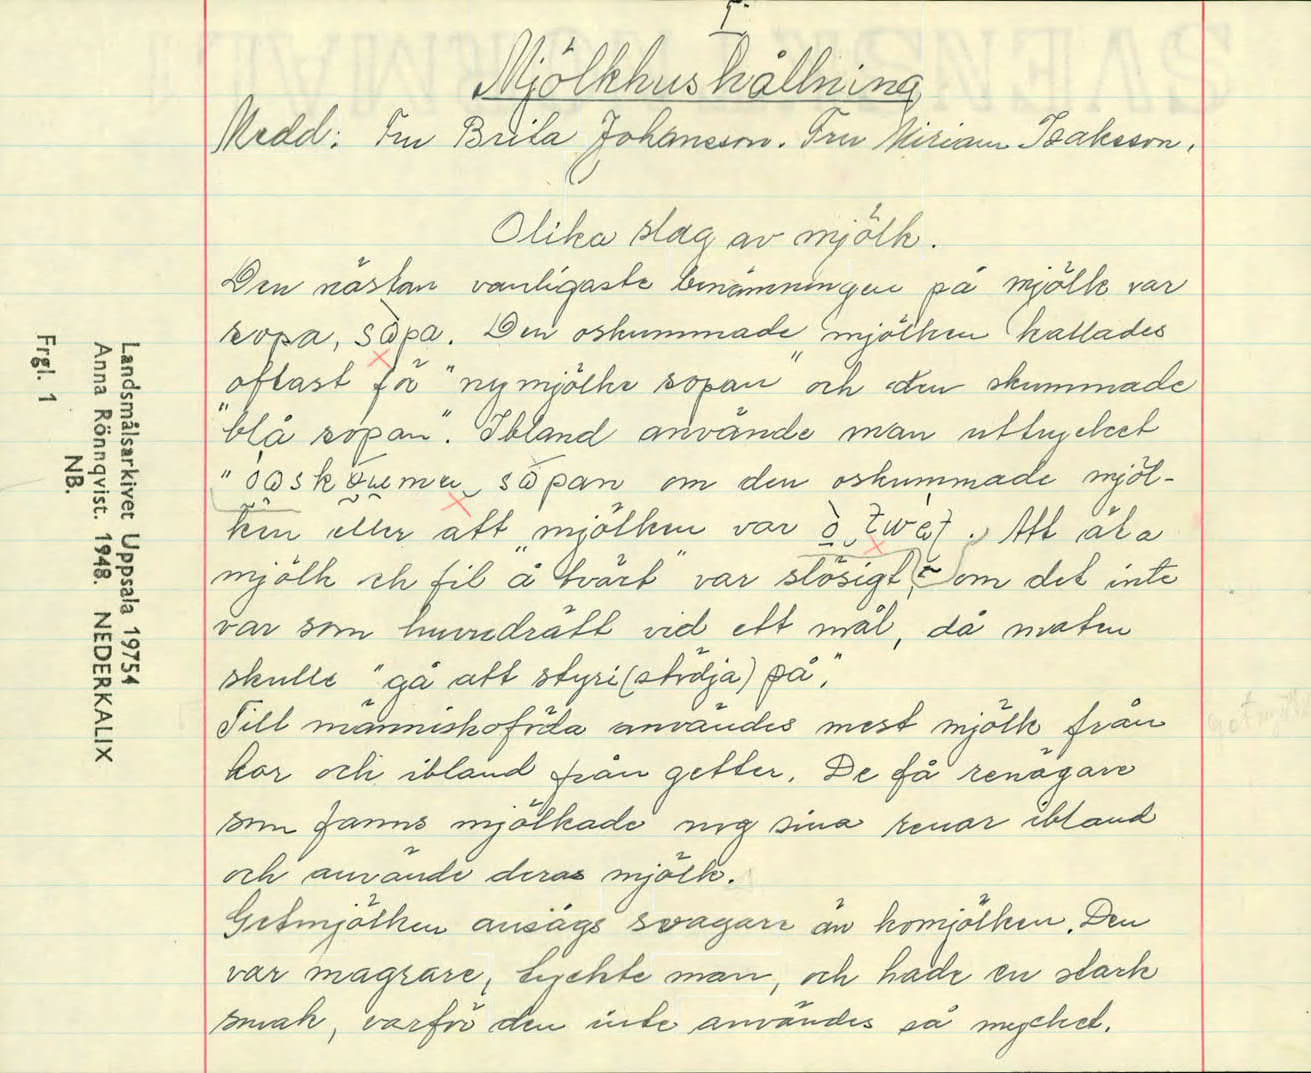 1.
Mjölkhushållning
Medd: Fru Brita Johansson. Fru Miriam Isaksson.
Olika slag av mjölk.
Den nästan vanligaste benämningen på mjölk var
sopa, sὼpa. Den oskummade mjölken kallades
oftast för "nymjölke sopan" och den skummade
"blå sopan". Ibland använde man uttrycket
om den oskummade mjöl-
ken eller att mjölken var . Att äta
mjölk och fil "å tvärt" var slösigt, om det inte
var som huvudrätt vid ett mål, då maten
skulle "gå att styri (stödja) på."
Till människoföda användes mest mjölk från
kor och ibland från getter. De få renägare
som fanns mjölkade nog sina renar ibland
och använde deras mjölk.
Getmjölken ansågs svagare än komjölken. Den
var magrare, tyckte man, och hade en stark
smak, varför den inte användes så mycket.
Landsmålsarkivet Uppsala 19754
Anna Rönnqvist. 1948. NEDERKALIX
NB.
Frgl. 1
getmjölk